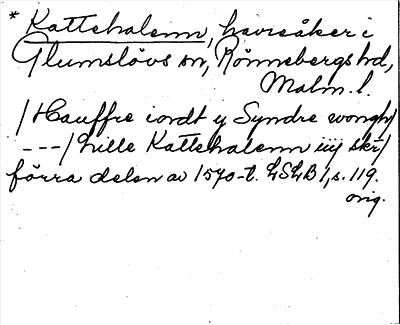 * Kattehalenn, havreåker i
Glumslövs sn, Rönnebergs hd,
Malm. l.
/Hauffre iordt y Syndre wongh/
---/ Lille Kattehalenn iiij skr/
förra delen av 1570-t. LSLB 1, s. 119.
orig.